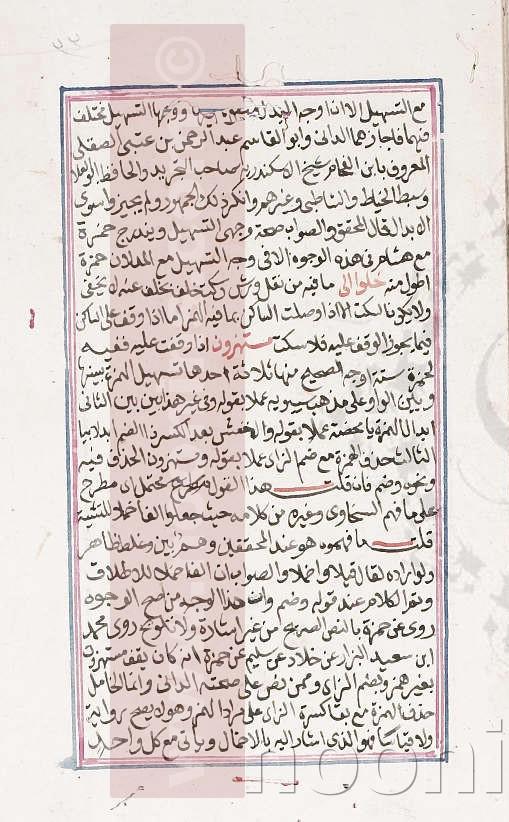 مع التسهيل الا اذا وجه البدل ووجها التسهيل مختلف
فيهما فاجازهما الدانى وابو القاسم عبد الرحمن بن عتيق الصقلى
المعروف بابن الفحام شيخ الاسكندرية صاحب التجريد والحافظ ابو العلا
وسبط الخياط والشاطبى وغيرهم وانكر ذلك الجمهور ولم يجيزوا سوى
الابدال قال المحقق والصواب صحة وجهى التسهيل ويندرج حمزة
مع هشام فى هذه الوجوه الا فى وجه التسهيل مع المد لان حمزة
اطول منه خلوا الى ما فيه من نقل ورش وسكت خلف بخلف عنه لا يخفى
ولا يكون السكت الا اذا وصلت الساكن بما فيه الهمز اما اذا وقفت على الساكن
فيما يجوز الوقف عليه فلا سكت مستهزون اذا وقفت عليه ففيه
لحمزة ستة اوجه الصحيح منها ثلاثة احدها تسهيل الهمزة بينها
وبين الواو على مذهب سيبويه عملا بقوله وفى غير هذا بين بين الثانى
ابدال الهمزة يا محضة عملا بقوله والاخفش بعد الكسر ذا الضم ابدلا بيا
الثالث حذف الهمزة مع ضم الزاى عملا بقوله ومستهزون الحذف فيه
ونحوه وضم فان قلت هذا القول مطرح يحتمل ان مطرح
على ما فهم السخاوى وغيره من كلامه حيث جعلوا الف اخملا للتثنية
قلت ما فهموه هو عند المحققين وهم بين وغلط ظاهر
ولو اراده لقال قيلا واخملا والصواب ان الف اخملا للاطلاق
وتم الكلام عند قوله وضم وان هذا الوجه من اصح الوجوه
روى عن حمزة بالنص الصريح من غير اشارة ولا تلويح روى محمد
ابن سعيد البزار عن خلاد عن سليم عن حمزة انه كان يقف مستهزون
بغير همز وبضم الزاى وممن نص على صحته الدانى وانما الخامل
حذف الهمزة مع بقا كسرة الزاى على مراد الهمز وهو لا يصح رواية
ولا قياسا فهو الذى اشار اليه بالاخمال وياتى مع كل واحد
nooni